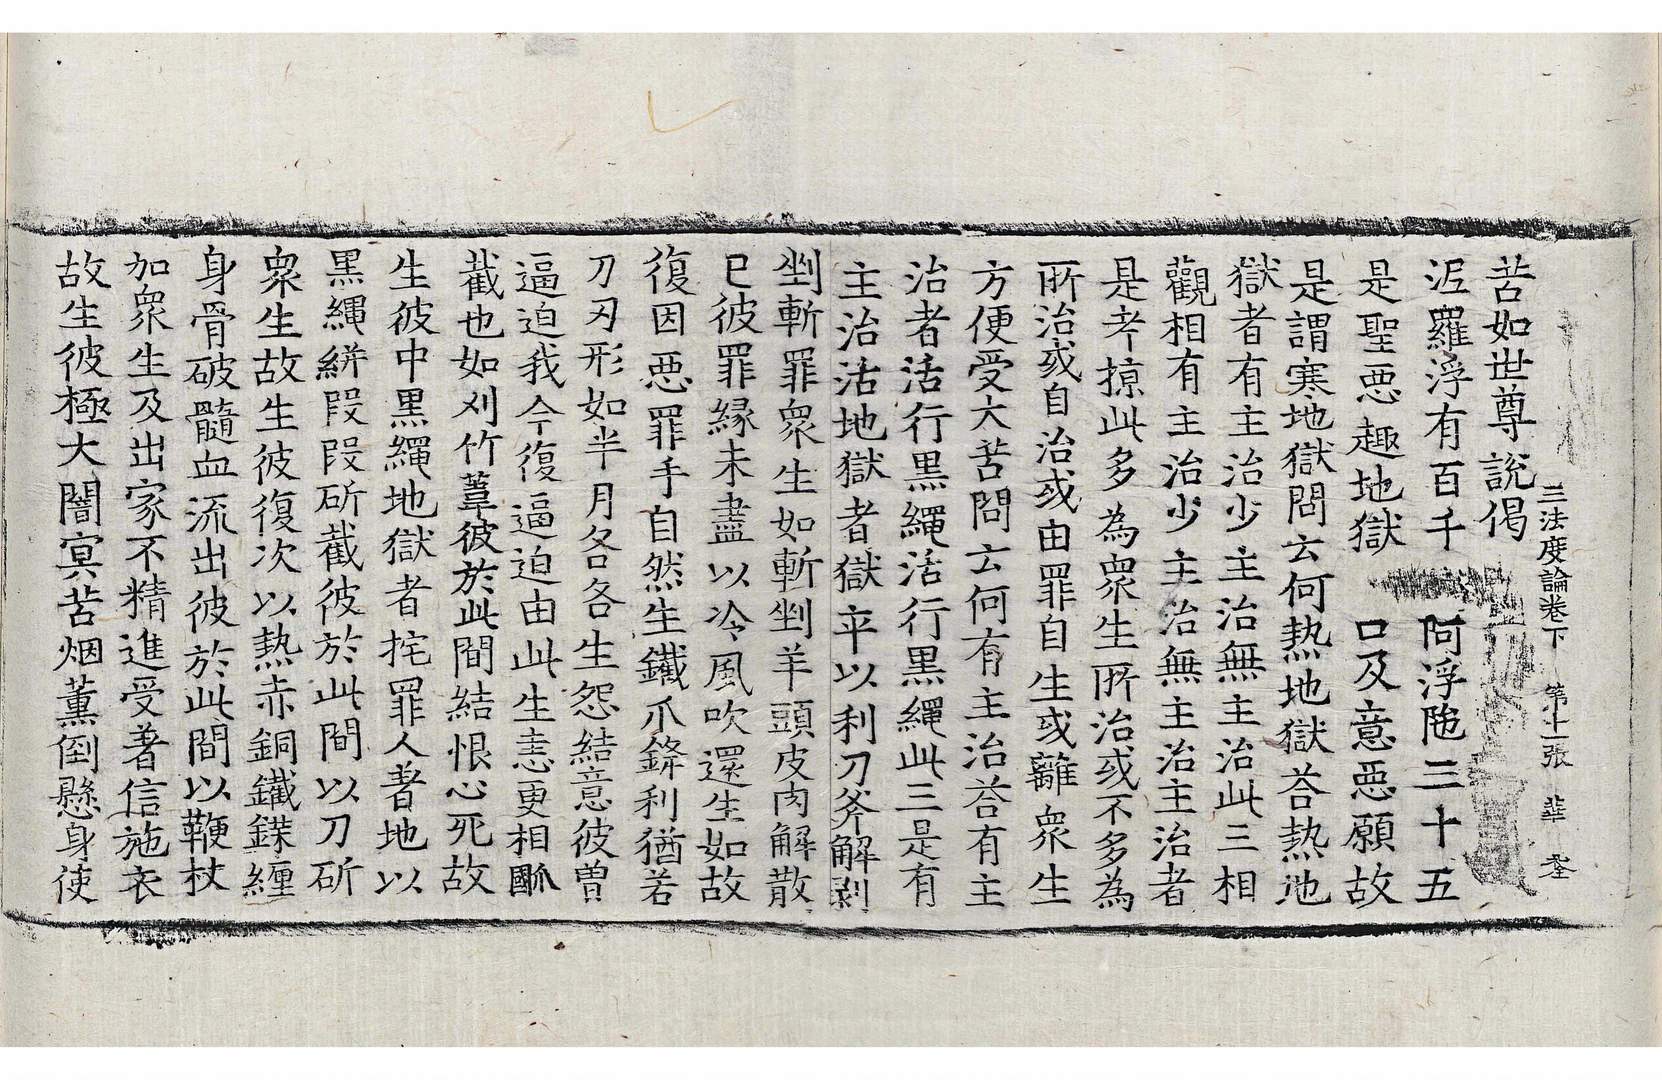 三法度論卷下 第十一張 華 垄
苦如世尊說偈
泥羅浮有百千 阿浮陁三十五
是聖惡趣地獄 口及意惡願故
是謂寒地獄問云何熱地獄荅熱地
獄者有主治少主治無主治此三相
觀相有主治少主治無主治主治者
是考掠此多為衆生所治或不多為
所治或自治或由罪自生或離衆生
方便受大苦問云何有主治荅有主
治者活行黒繩活行黒繩此三是有
主治活地獄者獄卒以利刀斧解剥
剉斬罪衆生如斬剉羊頭皮肉解散
已彼罪縁未盡以冷風吹還生如故
復因惡罪手自然生鐵爪鋒利猶若
刀刃形如半月各各生怨結意彼曽
逼迫我今復逼迫由此生恚更相
截也如刈竹葦彼於此間結恨心死故
生彼中黒繩地獄者拕罪人著地以
黒繩絣段段斫截彼於此間以刀斫
衆生故生彼復次以熱赤銅鐵鍱纏
身骨破髓血流出彼於此間以鞭杖
加衆生及出家不精進受著信施衣
故生彼極大闇㝠苦烟薰倒懸身使